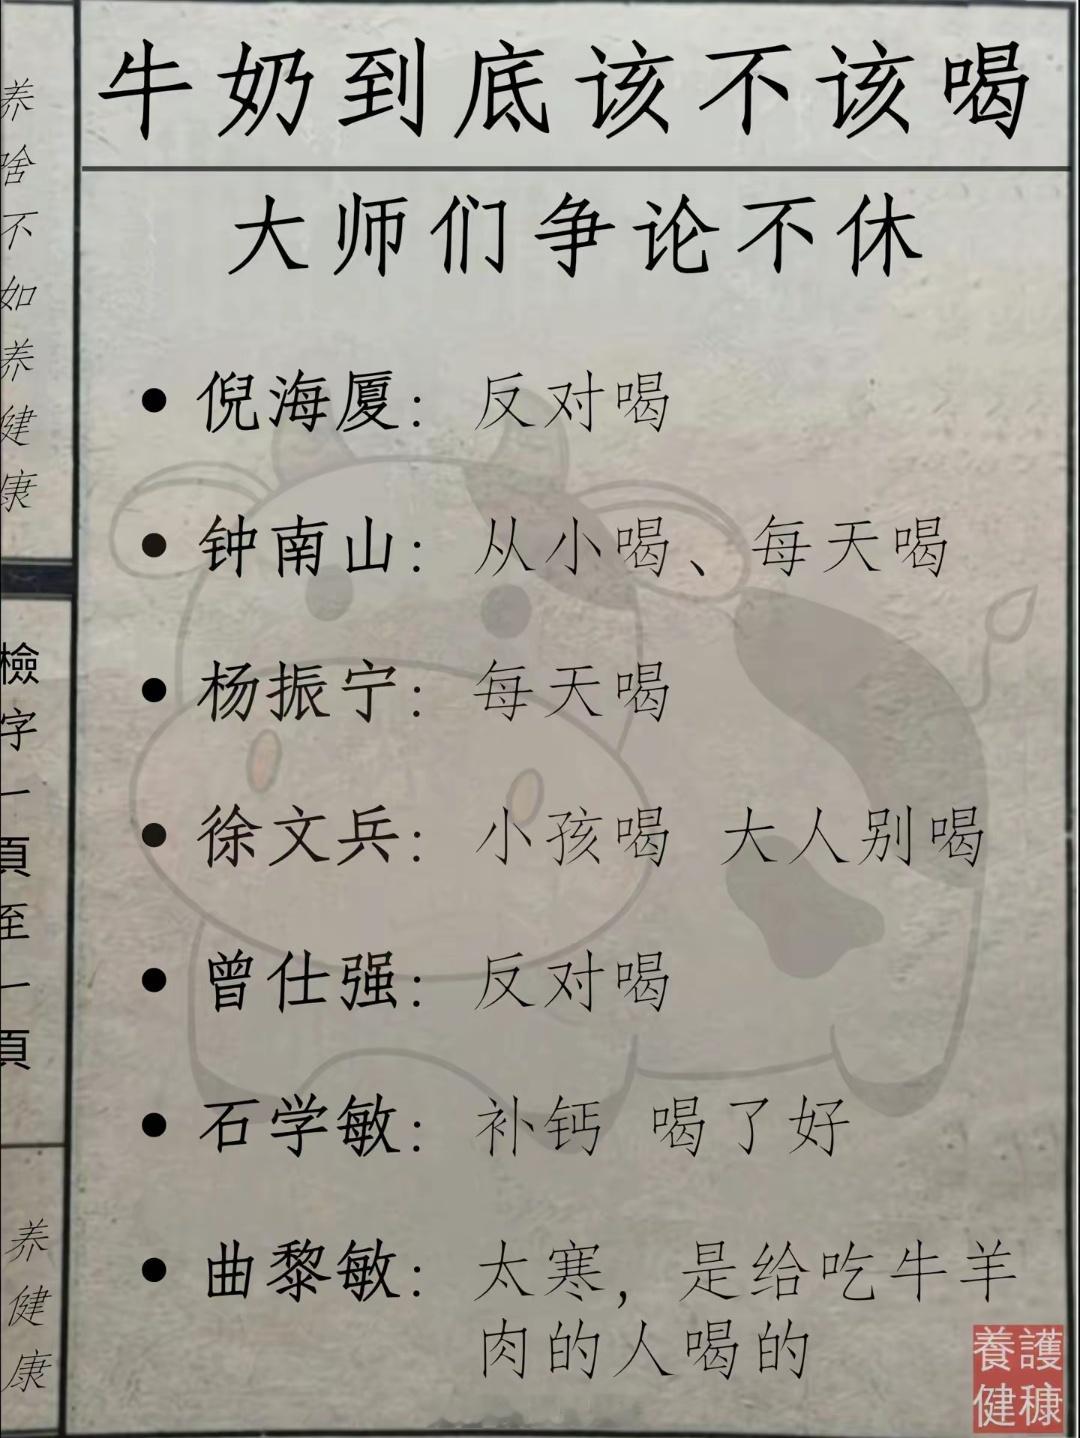 牛奶到底该不该喝
大师们争论不休
• 倪海厦：反对喝
• 钟南山：从小喝、每天喝
• 杨振宁：每天喝
• 徐文兵：小孩喝 大人别喝
• 曾仕强：反对喝
• 石学敏：补钙 喝了好
• 曲黎敏：太寒，是给吃牛羊
肉的人喝的
养啥不如养健康
檢字一頁至一頁
养健康
養護
健穅